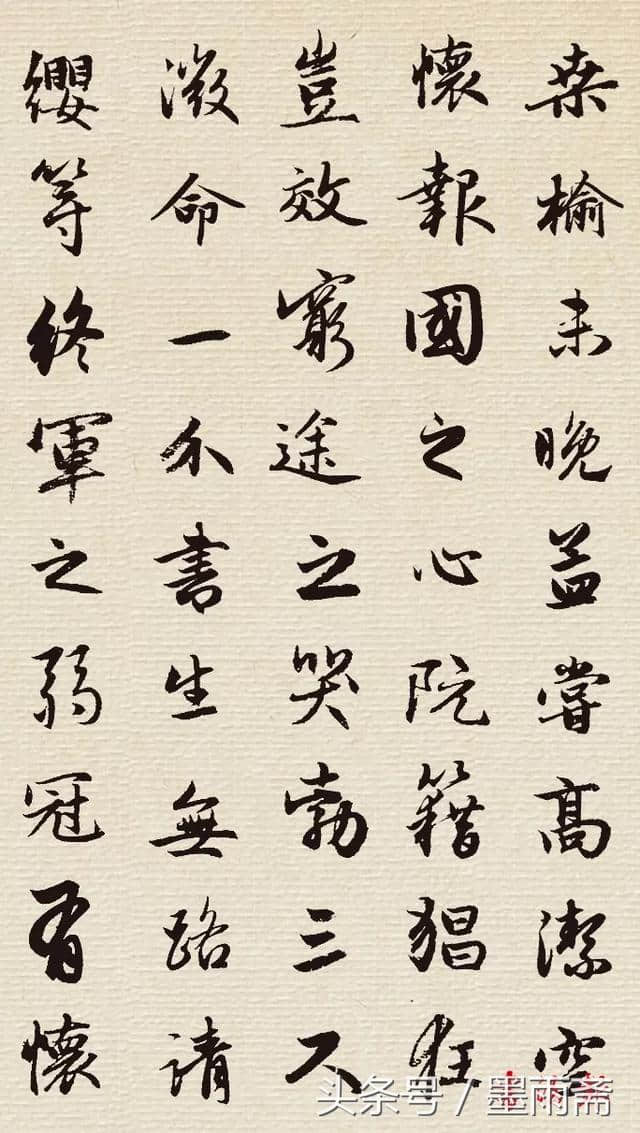 桒榆未晚益嘗高潔空
懷報國之心阮籍猖狂
豈效窮途之哭勃三尺
微命一介書生無路請
纓等終軍之弱冠有懷
头条号 / 墨雨斋